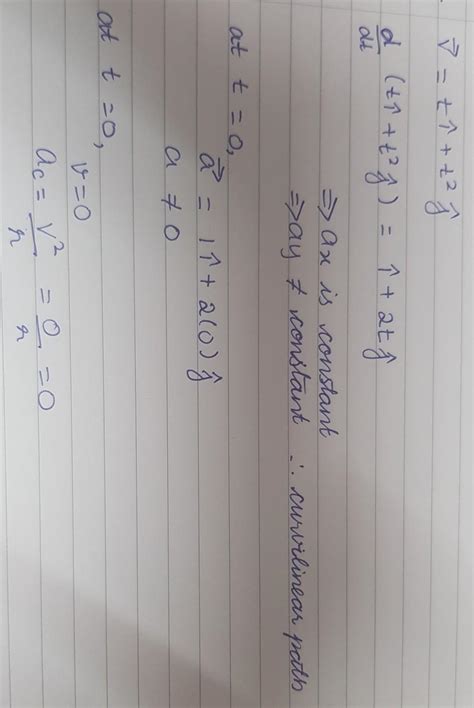 v⃗ = t î + t² ĵ
d/dt (t î + t² ĵ) = î + 2t ĵ
⇒ ax is constant
⇒ ay ≠ constant ∴ curvilinear path
at t = 0,
a⃗ = 1 î + 2(0) ĵ
a ≠ 0
at t = 0,
v = 0
ac = v²/r = 0/r = 0